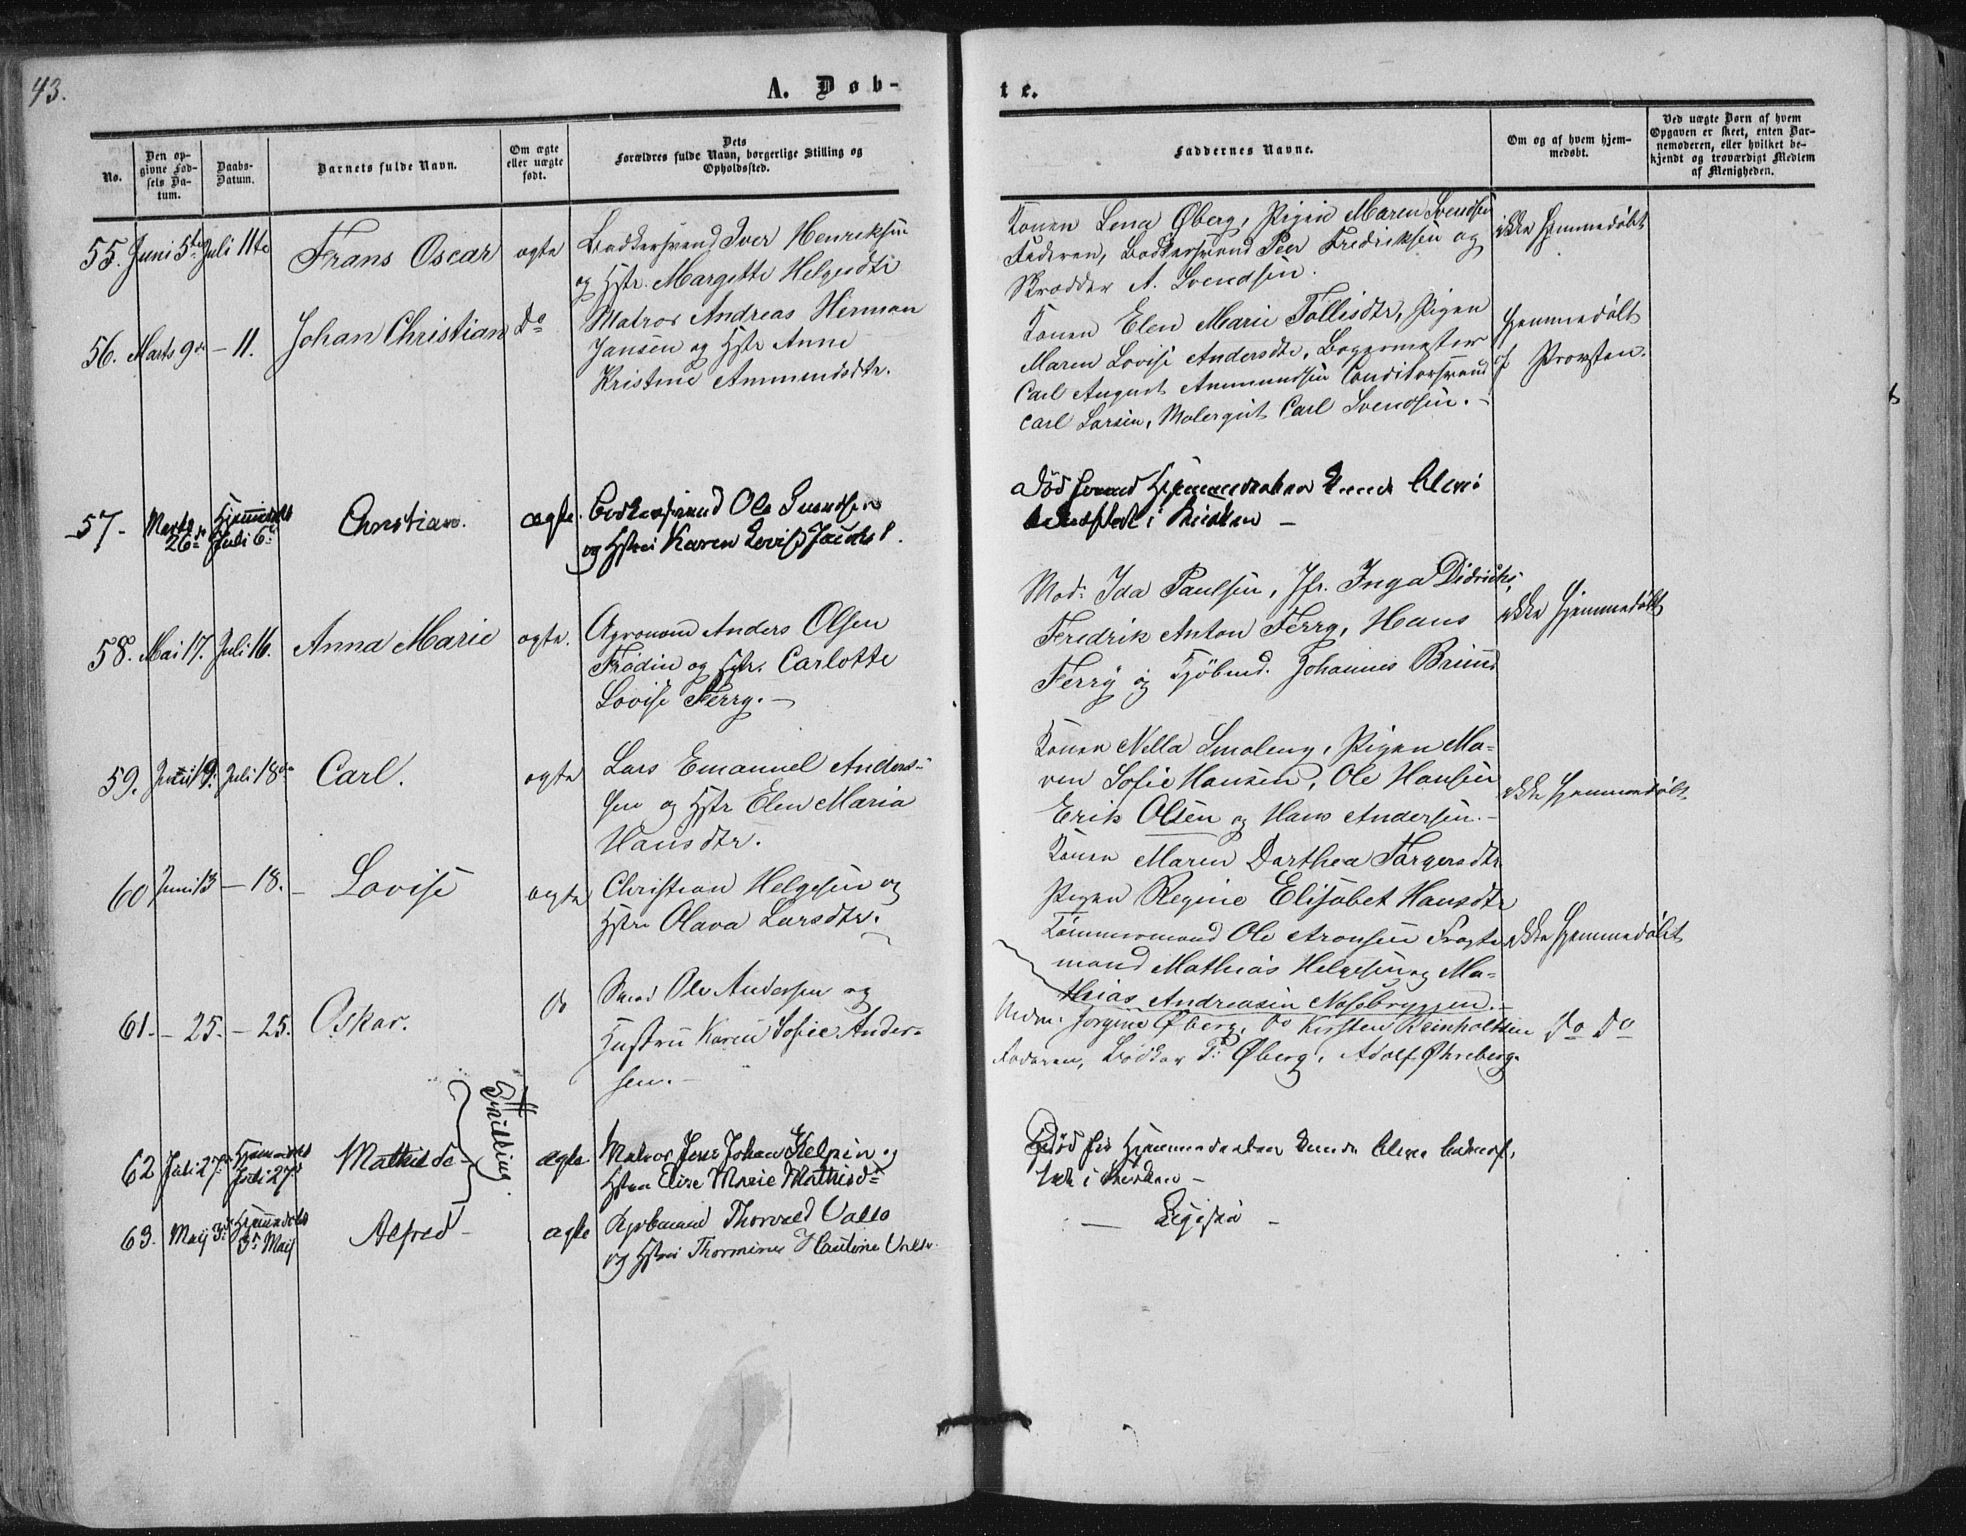 43.
A. Døb-
te.
No.
Den op-
givne Fød-
sels Da-
tum.
Daabs-
Datum.
Barnets fulde Navn.
Om ægte
eller uægte
født.
Dets
Forældres fulde Navn, borgerlige Stilling og
Opholdssted.
Faddernes Navne.
Om og af hvem hjem-
medøbt.
Ved uægte Børn af hvem
Opgaven er skeet, enten Bar-
nemoderen, eller hvilket be-
kjendt og troværdigt Medlem
af Menigheden.
55. Juni 5te Juli 11te Frans Oscar ægte Bødkersvend Iver Henriksen
og Hstr. Margette Helgesdtr
Konen Lena Øberg, Pigen Maren Svendsen
Faderen, Bødkersvend Peer Fredriksen og
Skrædder A. Svendsen.
ikke hjemmedøbt
56. Marts 9de – 11. Johan Christian Do Matros Andreas Herman
Jansen og Hstr Anne
Kristine Ammundsdtr.
Konen Elen Marie Tollisdtr, Pigen
Maren Lovise Andersdtr, Bagermester
Carl August Ammundsen Conditorsvend
Carl Larsen, Malergut Carl Svendsen. –
hjemmedøbt
af Provsten.
57 – Marts 26de Hjemmedøbt Juli 6te Christian. ægte. Bødkersvend Ole
og Hstrui Karen Lovise
Død forend Hjemmedaaben kunde blive
bekræftet i Kirken –
58. Mai 17. Juli 16. Anna Marie ægte. Agronom Anders Olsen
Frodin og Hstr. Carlotte
Lovise Ferry. –
Mad: Ida Paulsen, Jfr. Inga Didriche,
Feredrik Anton Ferry, Hans
Ferry og Kjøbmd. Johannes Bruun
ikke hjemmedøbt
59. Juni 19. Juli 18de Carl. ægte Lars Emanuel Ander-
sen og Hstr Elen Maria
Hansdtr.
Konen Nella Smaleng, Pigen Ma-
ren Sofie Hansen, Ole Hansen
Erik Olsen og Hans Andersen. –
ikke hjemmedøbt
60 Juni 13 – 18. – Lovise ægte Christian Helgesen og
Hstr Olava Larsdtr.
Konen Maren Dorthea Torgersdtr
Pigen Regine Elisabet Hansdtr
Tømmermand Ole Aronsen Fragte
mand Mathias Helgesen og Ma-
thias Andreasen Næsbryggen. –
ikke hjemmedøbt
61. – 25. – 25. Oskar. Do Smed Ole Andersen og
Hustru Karen Sofie Ander-
sen. –
Mdm. Jorgine Øberg, Do Kirsten Reinholtsen
Faderen, Bødker P. Øberg, Adolf Øhreberg.
Do Do
62 Juli 27de Hjemmedøbt Juli 27de Mathilde – Tvilling. ægte Matros Jens Johan
Hstru Elise Marie Mathisdtr
Død før Hjemmedaaben kunde blive bekræf-
tet i Kirken –
63. Maij 3de Hjemmedøbt 3de Maij Alfred – ægte Kjøbmand Thorvald Valle
og Hstrui Thormine Hautine Valle.
— Ligesaa –